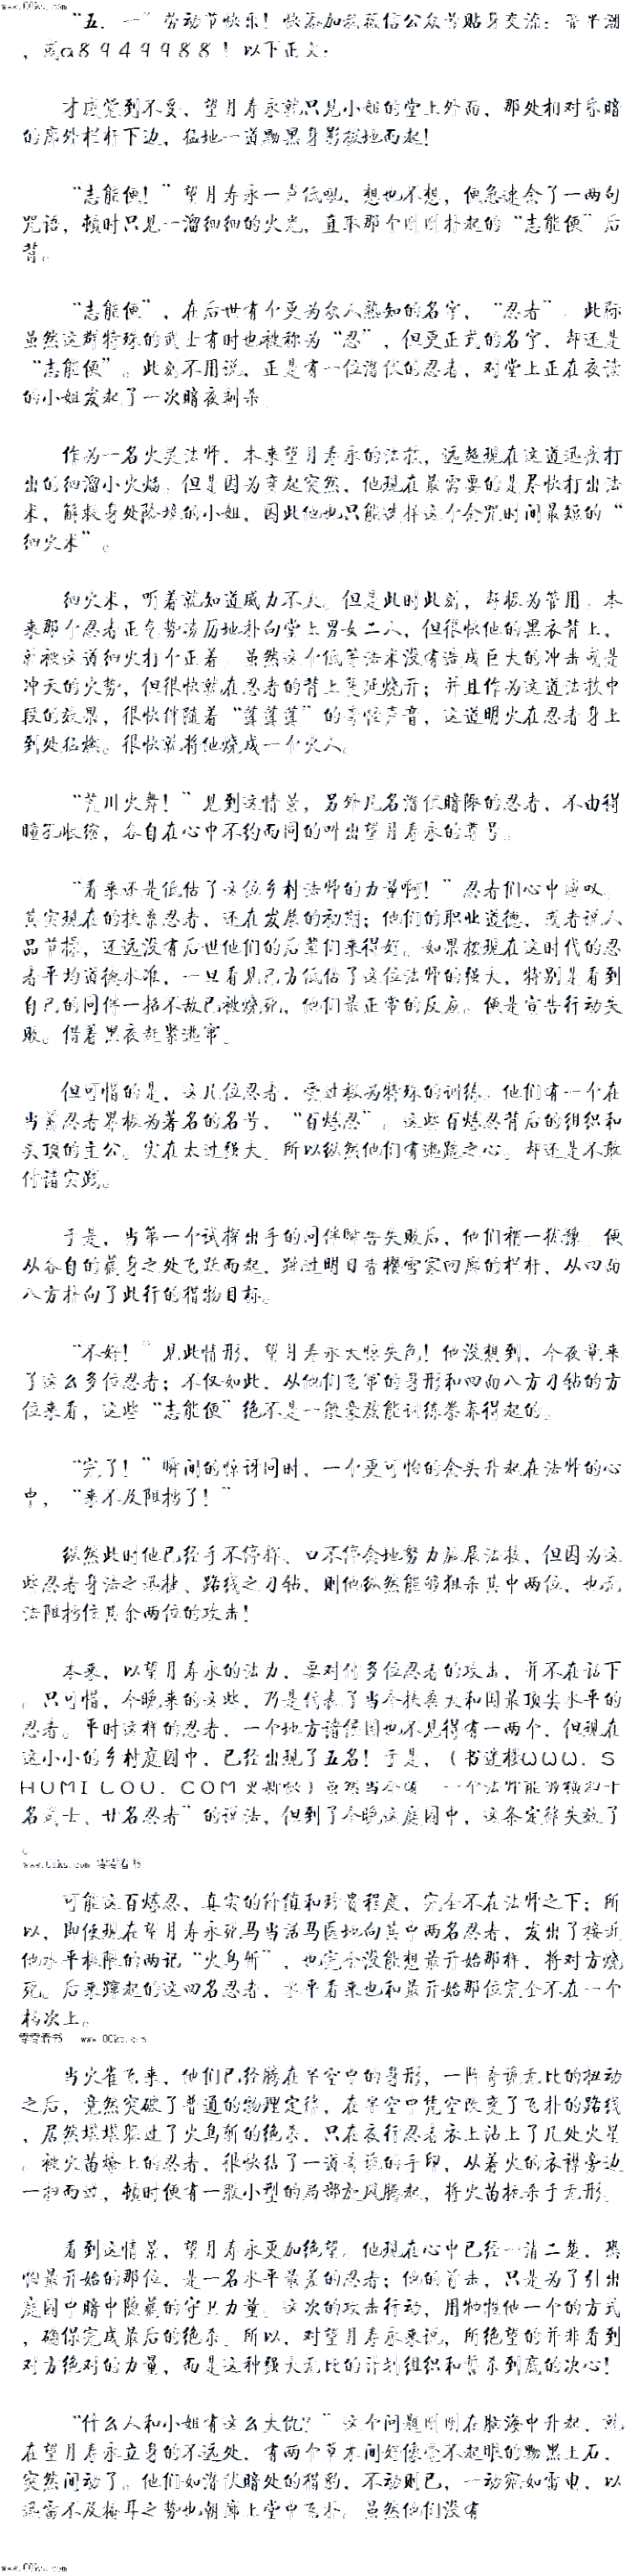 www.00ks.com
“五．一”劳动节快乐！快添加我微信公众号贴身交流：管平潮
，或a８９４９９８８！以下正文：
才感觉到不妥，望月寿永就只见小姐的堂上外面，那处相对昏暗
的廊外栏杆下边，猛地一道黝黑身影极地而起！
“志能便！”望月寿永一声低吼，想也不想，便急速念了一两句
咒语，顿时只见一溜细细的火光，直取那个刚刚扑起的“志能便”后
背。
“志能便”，在后世有个更为众人熟知的名字，“忍者”。此际
虽然这群特殊的武士有时也被称为“忍”，但更正式的名字，却还是
“志能便”。此刻不用说，正是有一位潜伏的忍者，对堂上正在夜读
的小姐发起了一次暗夜刺杀。
作为一名火灵法师，本来望月寿永的法技，远超现在这道迅疾打
出的细溜小火焰。但是因为变起突然，他现在最需要的是尽快打出法
术，解救身处险境的小姐，因此他也只能选择这个念咒时间最短的“
细火术”。
细火术，听着就知道威力不大。但是此时此刻，却极为管用。本
来那个忍者正气势凌厉地扑向堂上男女二人，但很快他的黑衣背上，
就被这道细火打个正着。虽然这个低等法术没有造成巨大的冲击或是
冲天的火势，但很快就在忍者的背上蔓延烧开；并且作为这道法技中
段的效果，很快伴随着“蓬蓬蓬”的奇怪声音，这道明火在忍者身上
到处猛燃。很快就将他烧成一个火人。
“荒川火舞！”见到这情景，另外几名潜伏暗隆的忍者，不由得
瞳孔收缩，各自在心中不约而同的叫出望月寿永的尊号。
“看来还是低估了这位乡村法师的力量啊！”忍者们心中感叹。
其实现在的扶桑忍者，还在发展的初期；他们的职业道德，或者说人
品节操，还远没有后世他们的后辈们来得好。如果按现在这时代的忍
者平均道德水准，一旦看见己方低估了这位法师的强大，特别是看到
自己的同伴一招不敌已被烧死，他们最正常的反应。便是宣告行动失
败。借着黑夜赶紧逃窜。
但可惜的是，这几位忍者，受过极为特殊的训练。他们有一个在
当前忍者界极为著名的名号，“百炼忍”。这些百炼忍背后的组织和
头顶的主公。实在太过强大。所以纵然他们有逃跑之心。却还是不敢
付诸实践。
于是，当第一个试探出手的同伴宣告失败后，他们稍一犹豫。便
从各自的藏身之处飞跃而起，跳过明日香樱雪家回廊的栏杆，从四面
八方扑向了此行的猎物目标。
“不好！”见此情形，望月寿永大惊失色！他没想到，今夜竟来
了这么多位忍者；不仅如此，从他们飞窜的身形和四面八方刁钻的方
位来看，这些“志能便”绝不是一般豪族能训练豢养得起的。
“完了！”瞬间的惊讶同时，一个更可怕的念头升起在法师的心
中，“来不及阻挡了！”
纵然此时他已经手不停挥、口不停念地努力施展法技，但因为这
些忍者身法之迅捷、路线之刁钻，则他纵然能够狙杀其中两位，也无
法阻挡住其余两位的攻击！
本来，以望月寿永的法力，要对付多位忍者的攻击，并不在话下
。只可惜，今晚来的这些，乃是代表了当今扶桑大和国最顶尖水平的
忍者。平时这样的忍者，一个地方诸侯国也不见得有一两个，但现在
这小小的乡村庭园中，已经出现了五名！于是，（书迷楼ＷＷＷ．Ｓ
ＨＵＭＩＬＯＵ．ＣＯＭ更新快）虽然当今有“一个法师能够横扫十
名武士、廿名忍者”的说法，但到了今晚这庭园中，这条定律失效了
。
www.00ks.com 零零看书
可能这百炼忍，真实的价值和珍贵程度，完全不在法师之下；所
以，即便现在望月寿永死马当活马医地向其中两名忍者，发出了接近
他水平极限的两记“火鸟斩”，也完全没能想最开始那样，将对方烧
死。后来蹿起的这四名忍者，水平看来也和最开始那位完全不在一个
档次上。
零零看书 www.00ks.com
当火雀飞来，他们已经腾在半空中的身形，一阵奇诡无比的扭动
之后，竟然突破了普通的物理定律，在半空中凭空改变了飞扑的路线
，居然堪堪躲过了火鸟斩的绝杀，只在夜行忍者衣上沾上了几处火星
。被火苗燎上的忍者，很快结了一道奇诡的手印，从着火的衣襟旁边
一扫而过，顿时便有一股小型的局部旋风腾起，将火苗扼杀于无形。
看到这情景，望月寿永更加绝望。他现在心中已经一清二楚，恐
怕最开始的那位，是一名水平最差的忍者；他的首击，只是为了引出
庭园中暗中隐藏的守卫力量。这次的攻击行动，用牺牲他一个的方式
，确保完成最后的绝杀。所以，对望月寿永来说，所绝望的并非看到
对方绝对的力量，而是这种强大无比的计划组织和誓杀到底的决心！
“什么人和小姐有这么大仇？”这个问题刚刚在脑海中升起，就
在望月寿永立身的不远处，有两个草木间好像毫不起眼的黝黑土石，
突然间动了。他们如潜伏暗处的猎豹，不动则已，一动宛如雷电，以
迅雷不及掩耳之势也朝廊上堂中飞扑。虽然他们没有
www.00ks.com